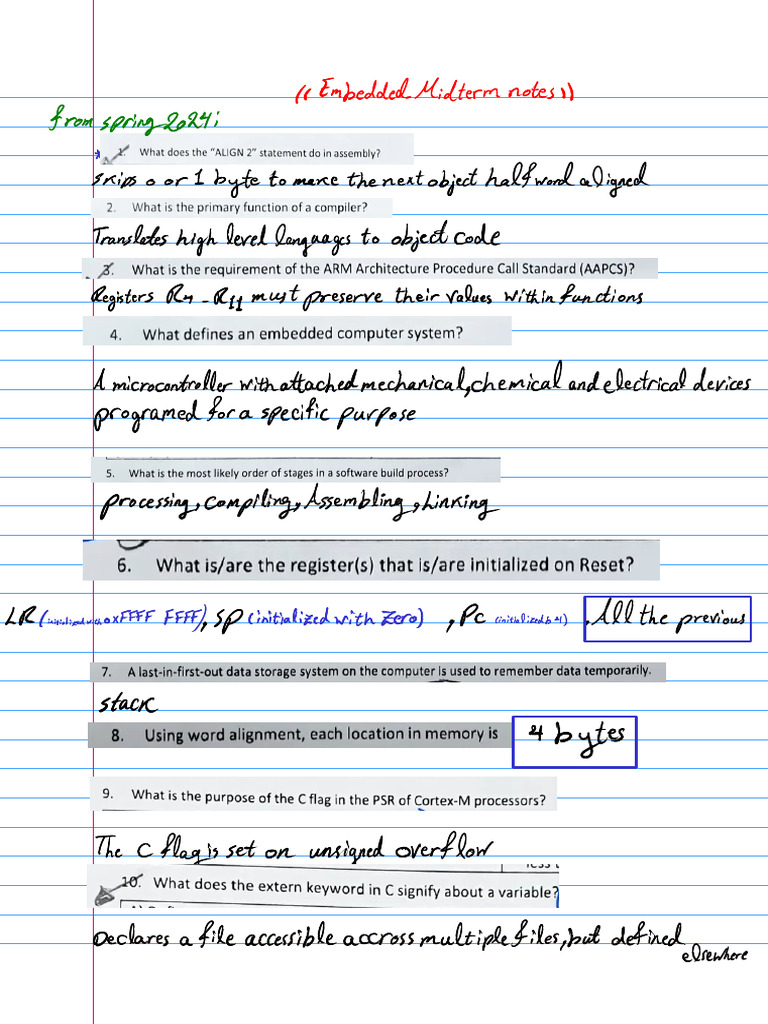 (( Embedded Midterm notes ))
from spring 2024:
1. What does the "ALIGN 2" statement do in assembly?
skips 0 or 1 byte to make the next object halfword aligned
2. What is the primary function of a compiler?
Translates high level languages to object code
3. What is the requirement of the ARM Architecture Procedure Call Standard (AAPCS)?
Registers R4 - R11 must preserve their values within functions
4. What defines an embedded computer system?
A microcontroller with attached mechanical, chemical and electrical devices
programed for a specific purpose
5. What is the most likely order of stages in a software build process?
processing, compiling, Assembling, Linking
6. What is/are the register(s) that is/are initialized on Reset?
LR (initialized with 0xFFFF FFFF), SP (initialized with Zero) , PC (initialized by 4) , All the previous
7. A last-in-first-out data storage system on the computer is used to remember data temporarily.
stack
8. Using word alignment, each location in memory is 4 bytes
9. What is the purpose of the C flag in the PSR of Cortex-M processors?
The C flag is set on unsigned overflow
10. What does the extern keyword in C signify about a variable?
Declares a file accessible accross multiple files, but defined
elsewhere